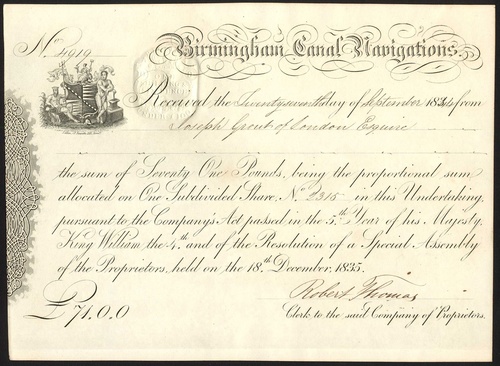 No. 4919
Birmingham Canal Navigations.
Received the Twenty seventh day of September 1844 from
Joseph Grout of London Esquire
the sum of Seventy One Pounds, being the proportional sum
allocated on One Subdivided Share, No. 2215 in this Undertaking,
pursuant to the Company's Act passed in the 5th Year of his Majesty,
King William the 4th and of the Resolution of a Special Assembly
of the Proprietors, held on the 18th December, 1835.
Robert Thomas
£71.0.0
Clerk to the said Company of Proprietors.